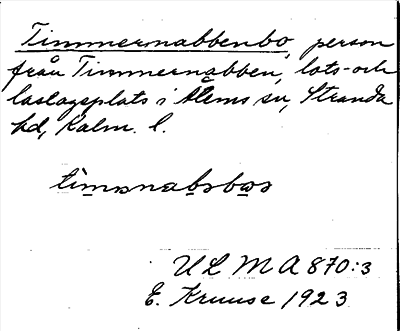 Timmernabbenbo, person
från Timmernabben, lots- och
lastageplats i Ålems sn, Stranda
hd, Kalm. l.
ULMA 870:3
E. Kruuse 1923